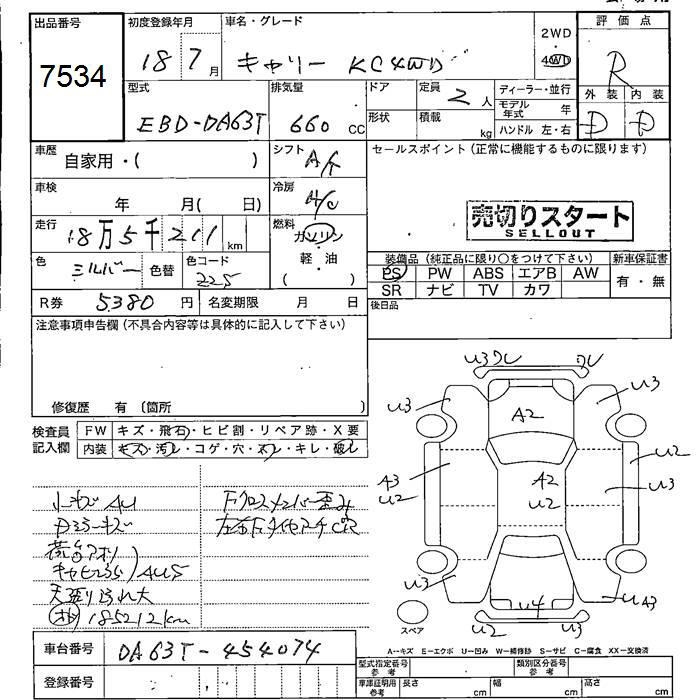 出品番号
7534
初度登録年月
18 7 月
車名・グレード
キャリー KC4WD
2WD
4WD
評価点
R
外装 内装
D D
型式
EBD-DA63T
排気量
660 CC
ドア
形状
定員
2 人
積載
kg
ディーラー・並行
モデル年式 年
ハンドル 左・右
車歴
自家用・( )
シフト
A/T
セールスポイント(正常に機能するものに限ります)
売切りスタート
SELLOUT
車検
年 月( 日)
冷房
A/C
走行
18万5千211 km
燃料
ガソリン
軽・油
( )
色
シルバー
色替
色コード
225
装備品(純正品に限り○をつけて下さい)
新車保証書
PS PW ABS エアB AW
SR ナビ TV カワ
有・無
R券 5380 円
名変期限 月 日
後日品
注意事項申告欄(不具合内容等は具体的に記入して下さい)
修復歴 有(箇所
検査員記入欄
FW キズ・飛石・ヒビ割・リペア跡・X要
内装 キズ・汚れ・コゲ・穴・スレ・キレ・破し
U3 ワレ
ワレ
U3
U3
A2
A3
U2
A2
U2
U2
U3
U3
U4
U A3
U2
U3
スペア
小キズ AU
Dミラーキズ
荷台アオリ
AU5
天張り汚れ大
185212km
Fクロスメンバー歪み
A--キズ E--エクボ U--凹み W--補修跡 S--サビ C--腐食 XX--交換済
車台番号
DA63T-454074
登録番号
型式指定番号 参考
類別区分番号 参考
車庫証明用 参考
長さ cm
幅 cm
高さ cm